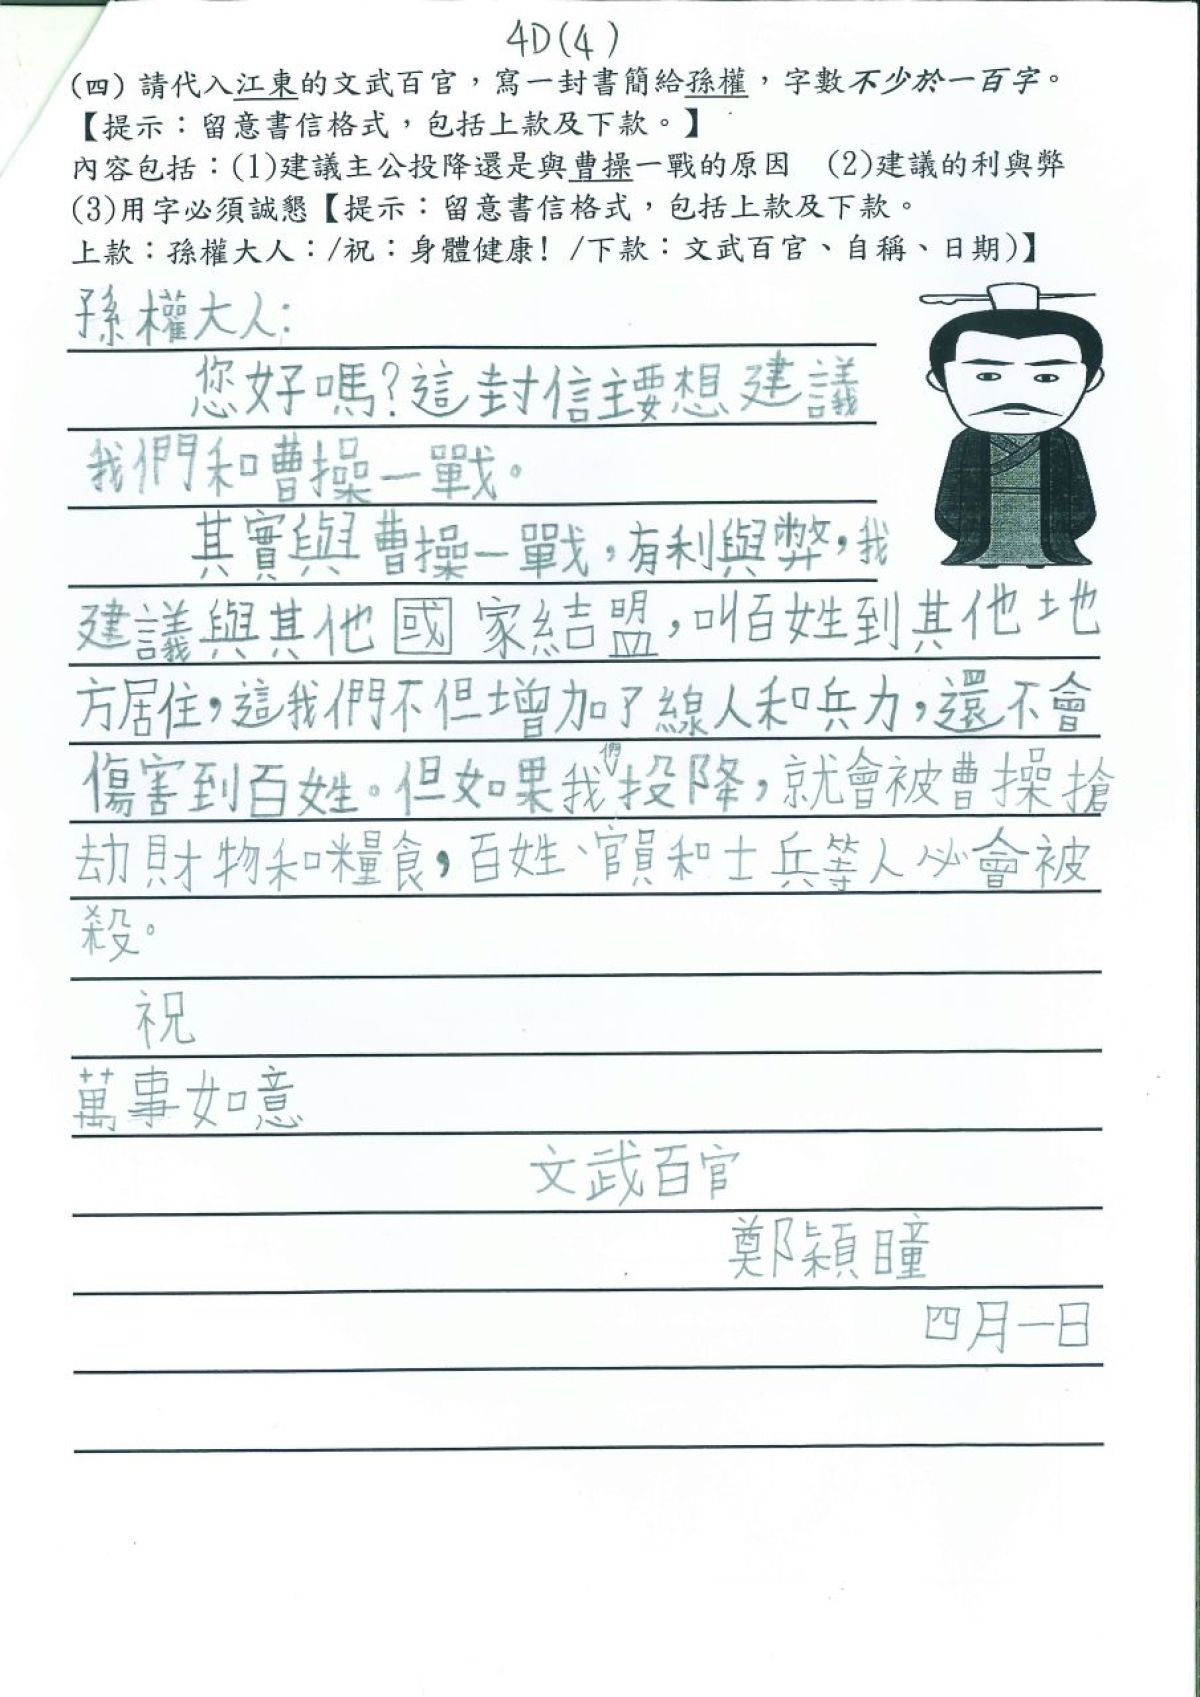 4D(4)
(四) 請代入江東的文武百官，寫一封書簡給孫權，字數不少於一百字。
【提示：留意書信格式，包括上款及下款。】
內容包括：(1)建議主公投降還是與曹操一戰的原因　(2)建議的利與弊
(3)用字必須誠懇【提示：留意書信格式，包括上款及下款。
上款：孫權大人：/祝：身體健康！/下款：文武百官、自稱、日期)】
孫權大人：
您好嗎？這封信主要想建議
我們和曹操一戰。
其實與曹操一戰，有利與弊，我
建議與其他國家結盟，叫百姓到其他地
方居住，這我們不但增加了線人和兵力，還不會
傷害到百姓。但如果我們投降，就會被曹操搶
劫財物和糧食，百姓、官員和士兵等人必會被
殺。
祝
萬事如意
文武百官
鄭穎曈
四月一日